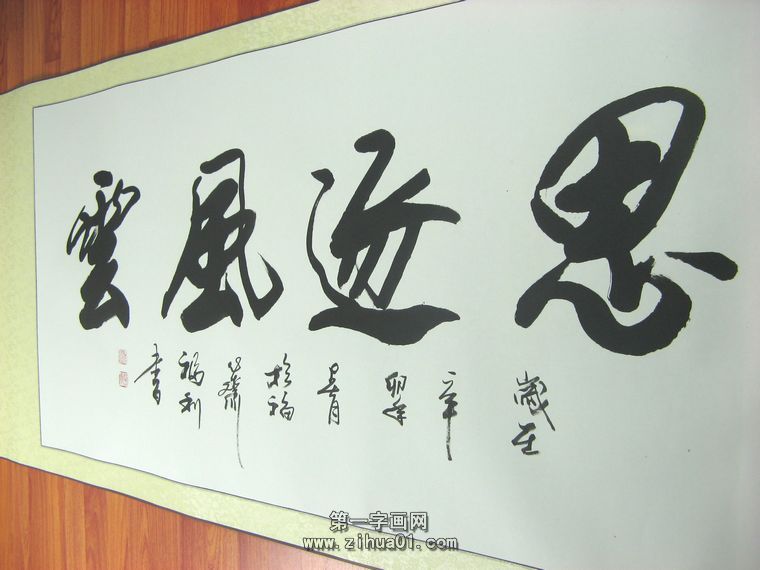 思逸風雲
歲在
辛
卯年
月
於福
齋
福利
書
第一字画网
www.zihua01.com